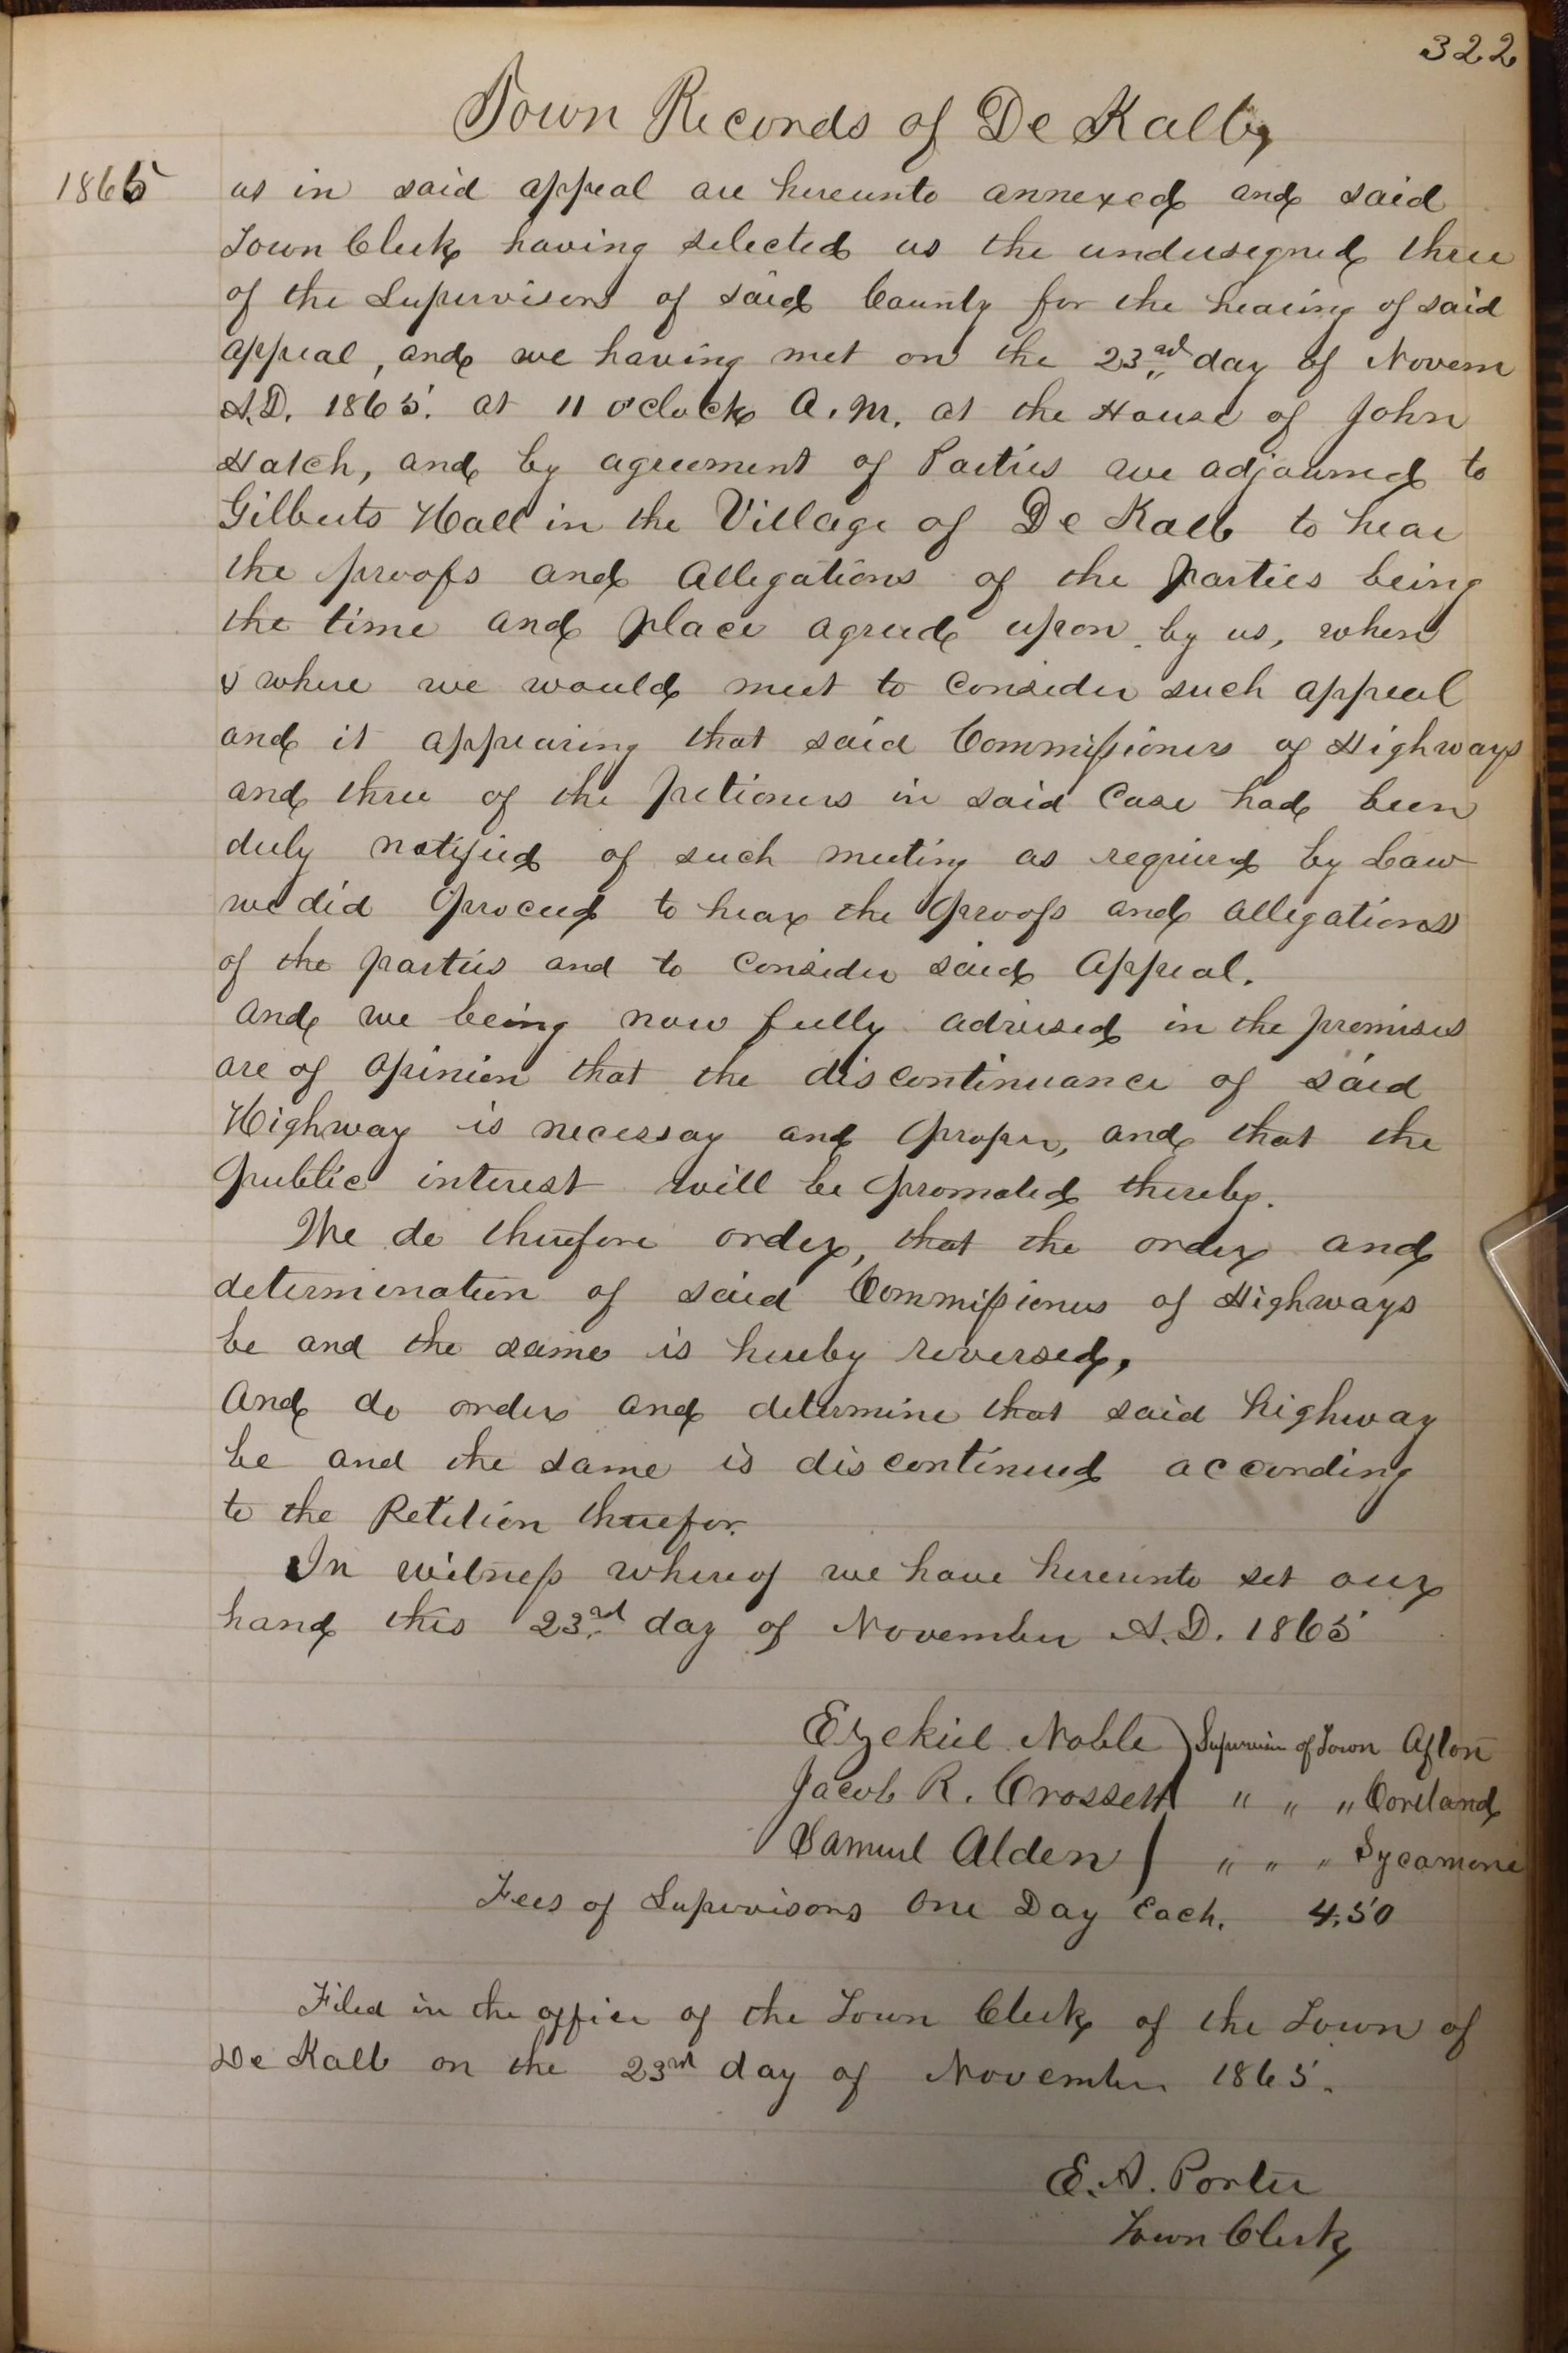 322
Town Records of De Kalb,
1865
as in said appeal are hereunto annexed and said
Town Clerk having selected us the undersigned three
of the Supervisors of said County for the hearing of said
appeal, and we having met on the 23rd day of Novem
A.D. 1865. at 11 o'clock A.M. at the House of John
Hatch, and by agreement of Parties we adjourned to
Gilberts Hall in the Village of De Kalb to hear
the proofs and Allegations of the parties being
the time and place agreed upon by us, when
& where we would meet to consider such appeal
and it appearing that said Commissioners of Highways
and three of the petioners in said Case had been
duly notified of such meeting as required by Law
we did proceed to hear the proofs and allegations
of the parties and to consider said Appeal.
And we being now fully advised in the premises
are of opinion that the discontinuance of said
Highway is necessay and proper, and that the
public interest will be promoted thereby.
We do therefore order, that the order and
determination of said Commissioners of Highways
be and the same is hereby reversed,
And do order and determine that said highway
be and the same is discontinued according
to the Petition therefor.
In witness whereof we have hereunto set our
hand this 23rd day of November A.D. 1865
Ezekiel Noble ) Supervisor of Town Afton
Jacob R. Crossett ) " " " Cortland
Samuel Alden ) " " " Sycamore
Fees of Supervisors One Day Each. 4.50
Filed in the office of the Town Clerk of the Town of
De Kalb on the 23rd day of November 1865.
E. A. Porter
Town Clerk